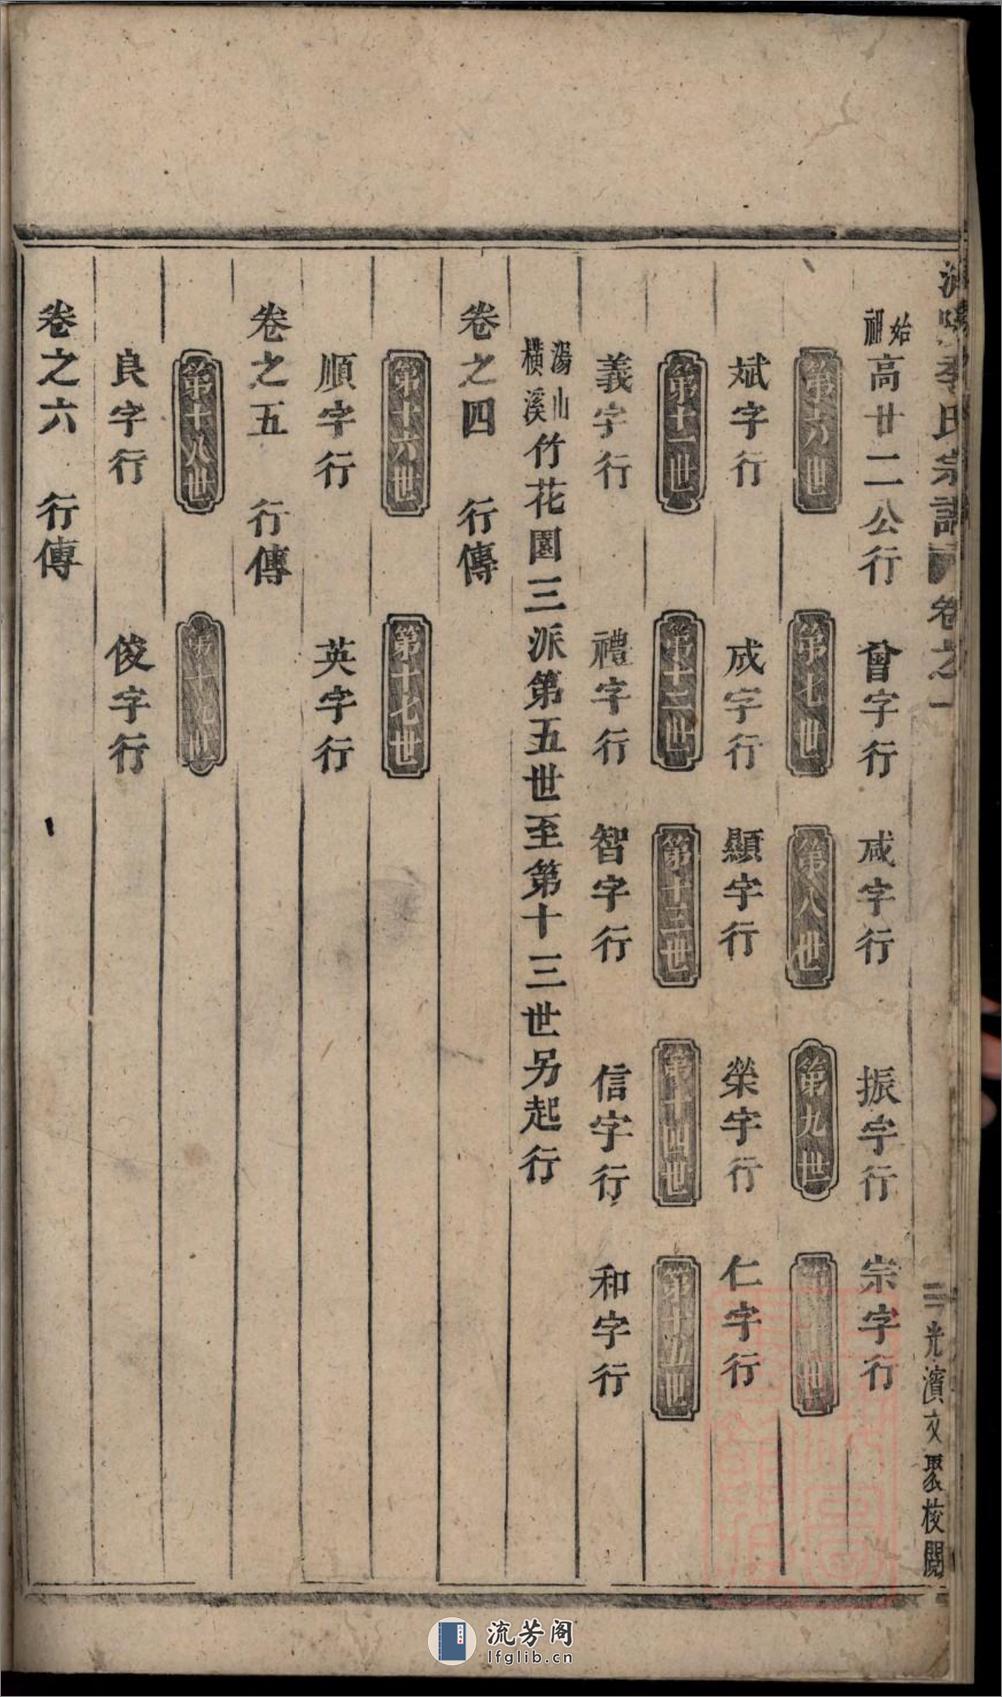 李氏宗譜 卷之一
光濱文聚校閱
始祖高廿二公行 曾字行 咸字行 振字行 宗字行
第六世 第七世 第八世 第九世
斌字行 成字行 顯字行 榮字行 仁字行
第十一世 第十二世 第十三世 第十四世 第十五世
義字行 禮字行 智字行 信字行 和字行
湯山橫溪竹花園三派第五世至第十三世另起行
卷之四 行傳
第十六世 第十七世
順字行 英字行
卷之五 行傳
第十八世 第十九世
良字行 俊字行
卷之六 行傳
流芳阁
lfglib.cn